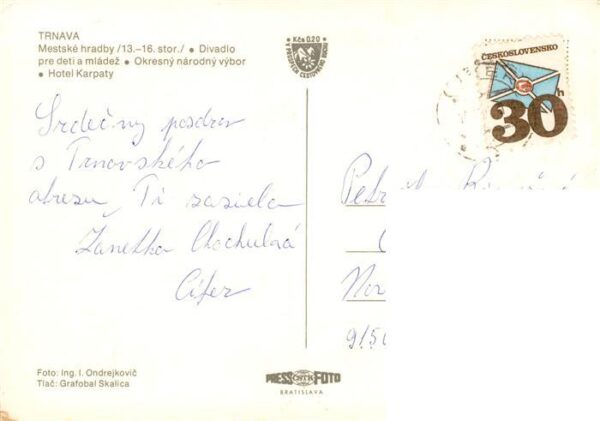 TRNAVA
Mestské hradby /13.–16. stor./ • Divadlo
pre deti a mládež • Okresný národný výbor
• Hotel Karpaty
Kčs 0,20
V PROSPECH CESTOVNÉHO
ČESKOSLOVENSKO
30h
Srdečný pozdrav
s Trnovského
okresu, Ti zasiela
Žanetka
Cífer
Foto: Ing. I. Ondrejkovič
Tlač: Grafobal Skalica
PRESS ČSTK FOTO
BRATISLAVA